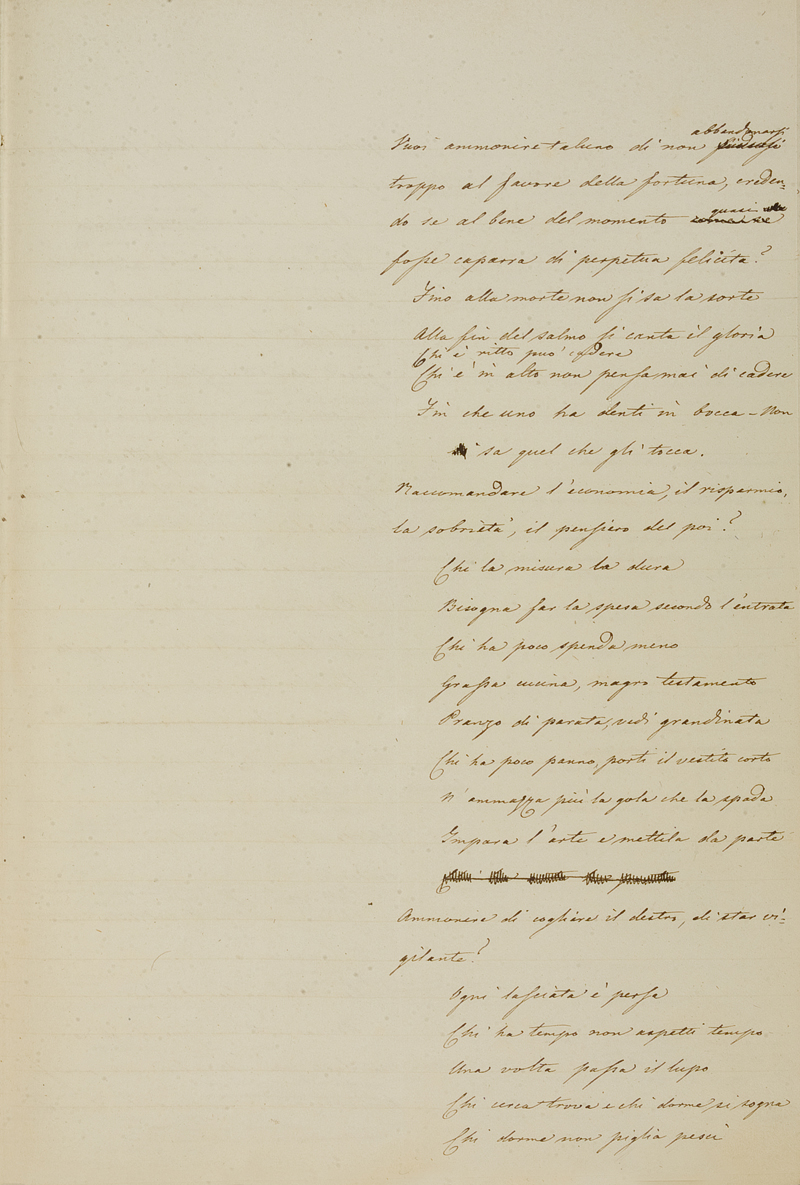 Vuoi ammonire taluno di non abbandonarsi
troppo al favore della fortuna, creden-
do se al bene del momento quasi
fosse caparra di perpetua felicità?
Fino alla morte non si sa la sorte
Alla fin del salmo si canta il gloria
Chi è ritto può cadere
Chi è in alto non pensa mai di cadere
Fin che uno ha denti in bocca - Non
sa quel che gli tocca.
Raccomandare l'economia, il risparmio,
la sobrietà, il pensiero del poi?
Chi la misura la dura
Bisogna far la spesa secondo l'entrata
Chi ha poco spenda meno
Grassa cucina, magro testamento
Pranzo di parata, vedi grandinata
Chi ha poco panno, porti il vestito corto
N'ammazza più la gola che la spada
Impara l'arte e mettila da parte
Ammonire di cogliere il destro, di star vi-
gilante?
Ogni lasciata è persa
Chi ha tempo non aspetti tempo
Una volta passa il lupo
Chi cerca trova e chi dorme si sogna
Chi dorme non piglia pesci